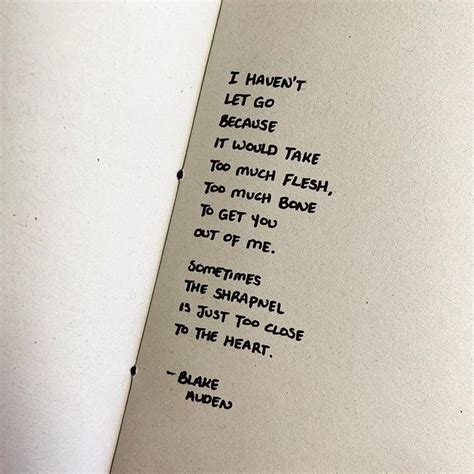 I HAVEN'T
LET GO
BECAUSE
IT WOULD TAKE
TOO MUCH FLESH,
TOO MUCH BONE
TO GET YOU
OUT OF ME.
SOMETIMES
THE SHRAPNEL
IS JUST TOO CLOSE
TO THE HEART.
- BLAKE
AUDEN